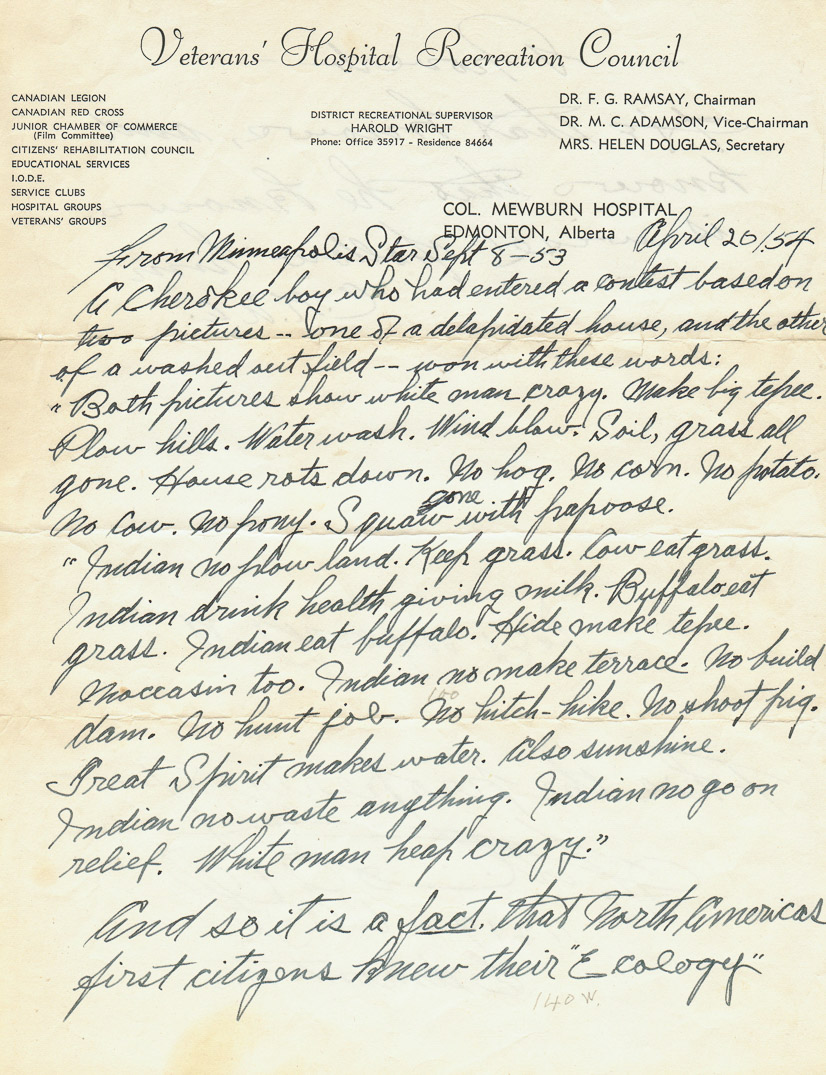 Veterans' Hospital Recreation Council
CANADIAN LEGION
CANADIAN RED CROSS
JUNIOR CHAMBER OF COMMERCE
(Film Committee)
CITIZENS' REHABILITATION COUNCIL
EDUCATIONAL SERVICES
I.O.D.E.
SERVICE CLUBS
HOSPITAL GROUPS
VETERANS' GROUPS
DISTRICT RECREATIONAL SUPERVISOR
HAROLD WRIGHT
Phone: Office 35917 - Residence 84664
DR. F. G. RAMSAY, Chairman
DR. M. C. ADAMSON, Vice-Chairman
MRS. HELEN DOUGLAS, Secretary
COL. MEWBURN HOSPITAL
EDMONTON, Alberta April 20/54
From Minneapolis Star Sept 8-53
A Cherokee boy who had entered a contest based on
two pictures -- one of a delapidated house, and the other
of a washed out field -- won with these words:
"Both pictures show white man crazy. Make big tepee.
Plow hills. Water wash. Wind blow. Soil, grass all
gone. House rots down. No hog. No corn. No potato.
No cow. No pony. Squaw gone with papoose.
"Indian no plow land. Keep grass. Cow eat grass.
Indian drink health giving milk. Buffalo eat
grass. Indian eat buffalo. Hide make tepee.
Moccasin too. Indian no make terrace. No build
dam. No hunt job. No hitch-hike. No shoot pig.
Great Spirit makes water. Also sunshine.
Indian no waste anything. Indian no go on
relief. White man heap crazy."
And so it is a fact. that North Americas
first citizens knew their "Ecology"
140 W.